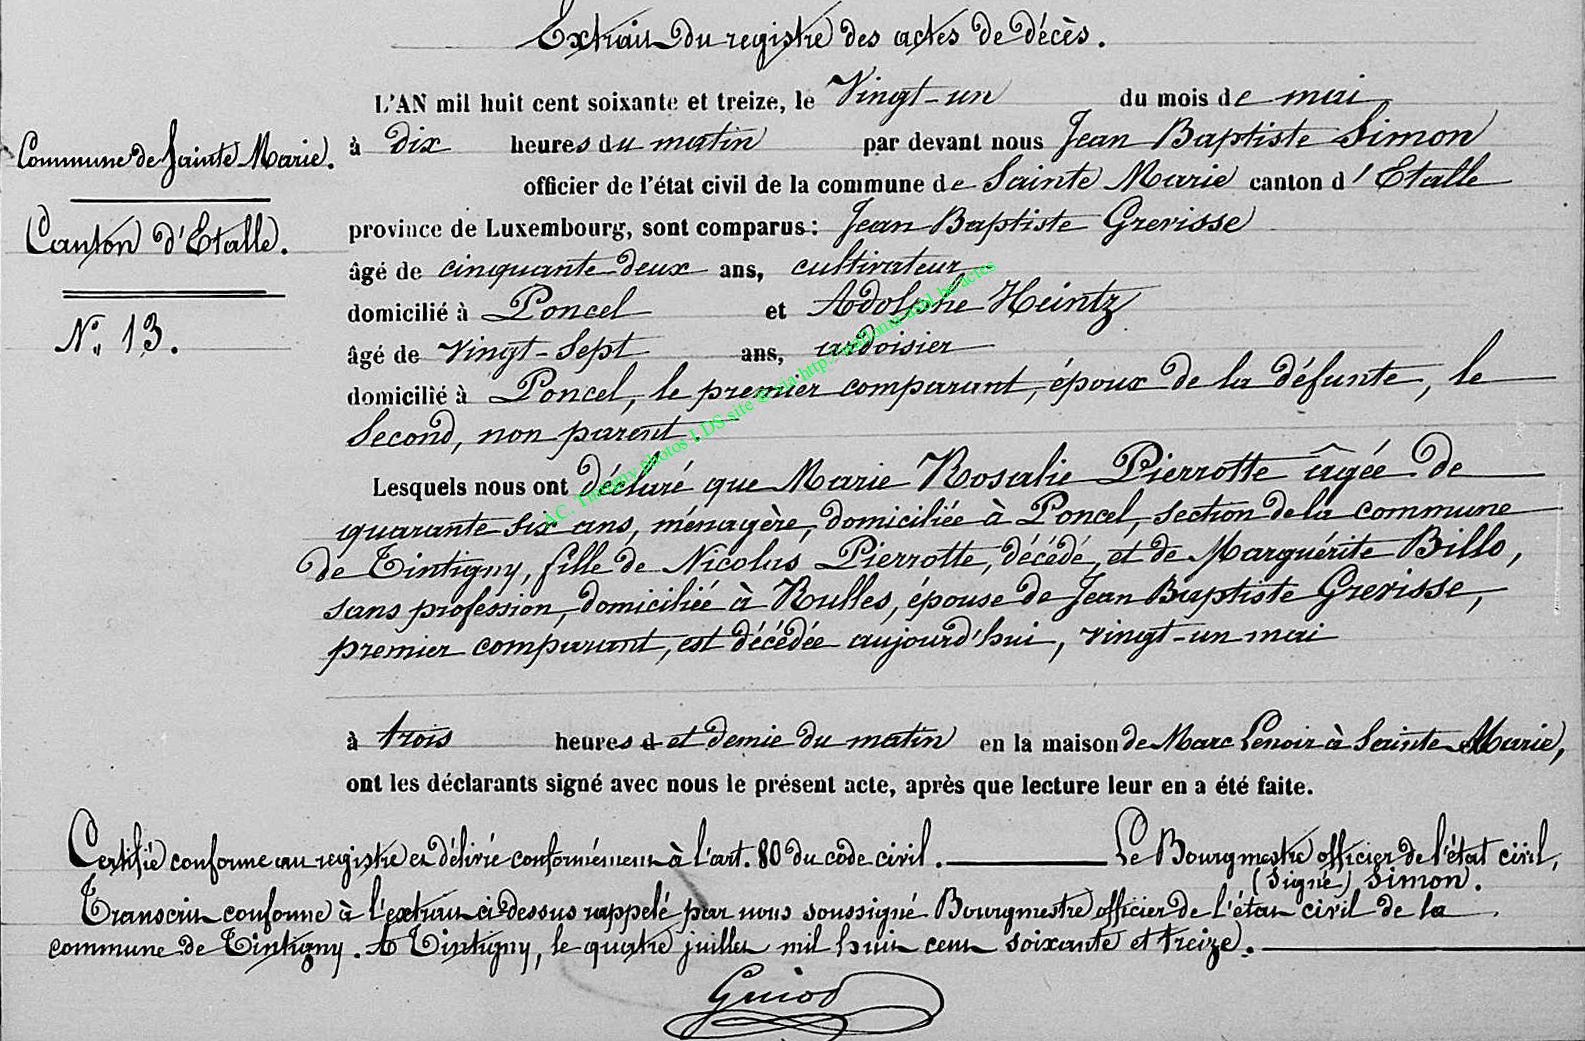 Extrait du registre des actes de décès.
L'AN mil huit cent soixante et treize, le Vingt-un du mois de mai
Commune de Sainte Marie.
à dix heures du matin par devant nous Jean Baptiste Simon
officier de l'état civil de la commune de Sainte Marie canton d'Etalle
Canton d'Etalle.
province de Luxembourg, sont comparus: Jean Baptiste Grevisse
âgé de cinquante-deux ans, cultivateur
domicilié à Poncel et Adolphe Heintz
N°. 13.
âgé de vingt-sept ans, ardoisier
domicilié à Poncel, le premier comparant, époux de la défunte, le
second, non parent.
Lesquels nous ont déclaré que Marie Rosalie Pierrotte âgée de
quarante six ans, ménagère, domiciliée à Poncel, section de la commune
de Tintigny, fille de Nicolas Pierrotte, décédé, et de Marguérite Billo,
sans profession, domiciliée à Rulles, épouse de Jean Baptiste Grevisse,
premier comparant, est décédée aujourd'hui, vingt-un mai
à trois heures d et demie du matin en la maison de Marc Lenoir à Sainte Marie,
ont les déclarants signé avec nous le présent acte, après que lecture leur en a été faite.
Certifié conforme au registre et délivré conformément à l'art. 80 du code civil. Le Bourgmestre officier de l'état civil,
(Signé) Simon.
Transcrit conforme à l'extrait ci-dessus rappelé par nous soussigné Bourgmestre officier de l'état civil de la
commune de Tintigny. A Tintigny, le quatre juillet mil huit cent soixante et treize.
Guiod
AC. Tintigny photos LDS site via http://